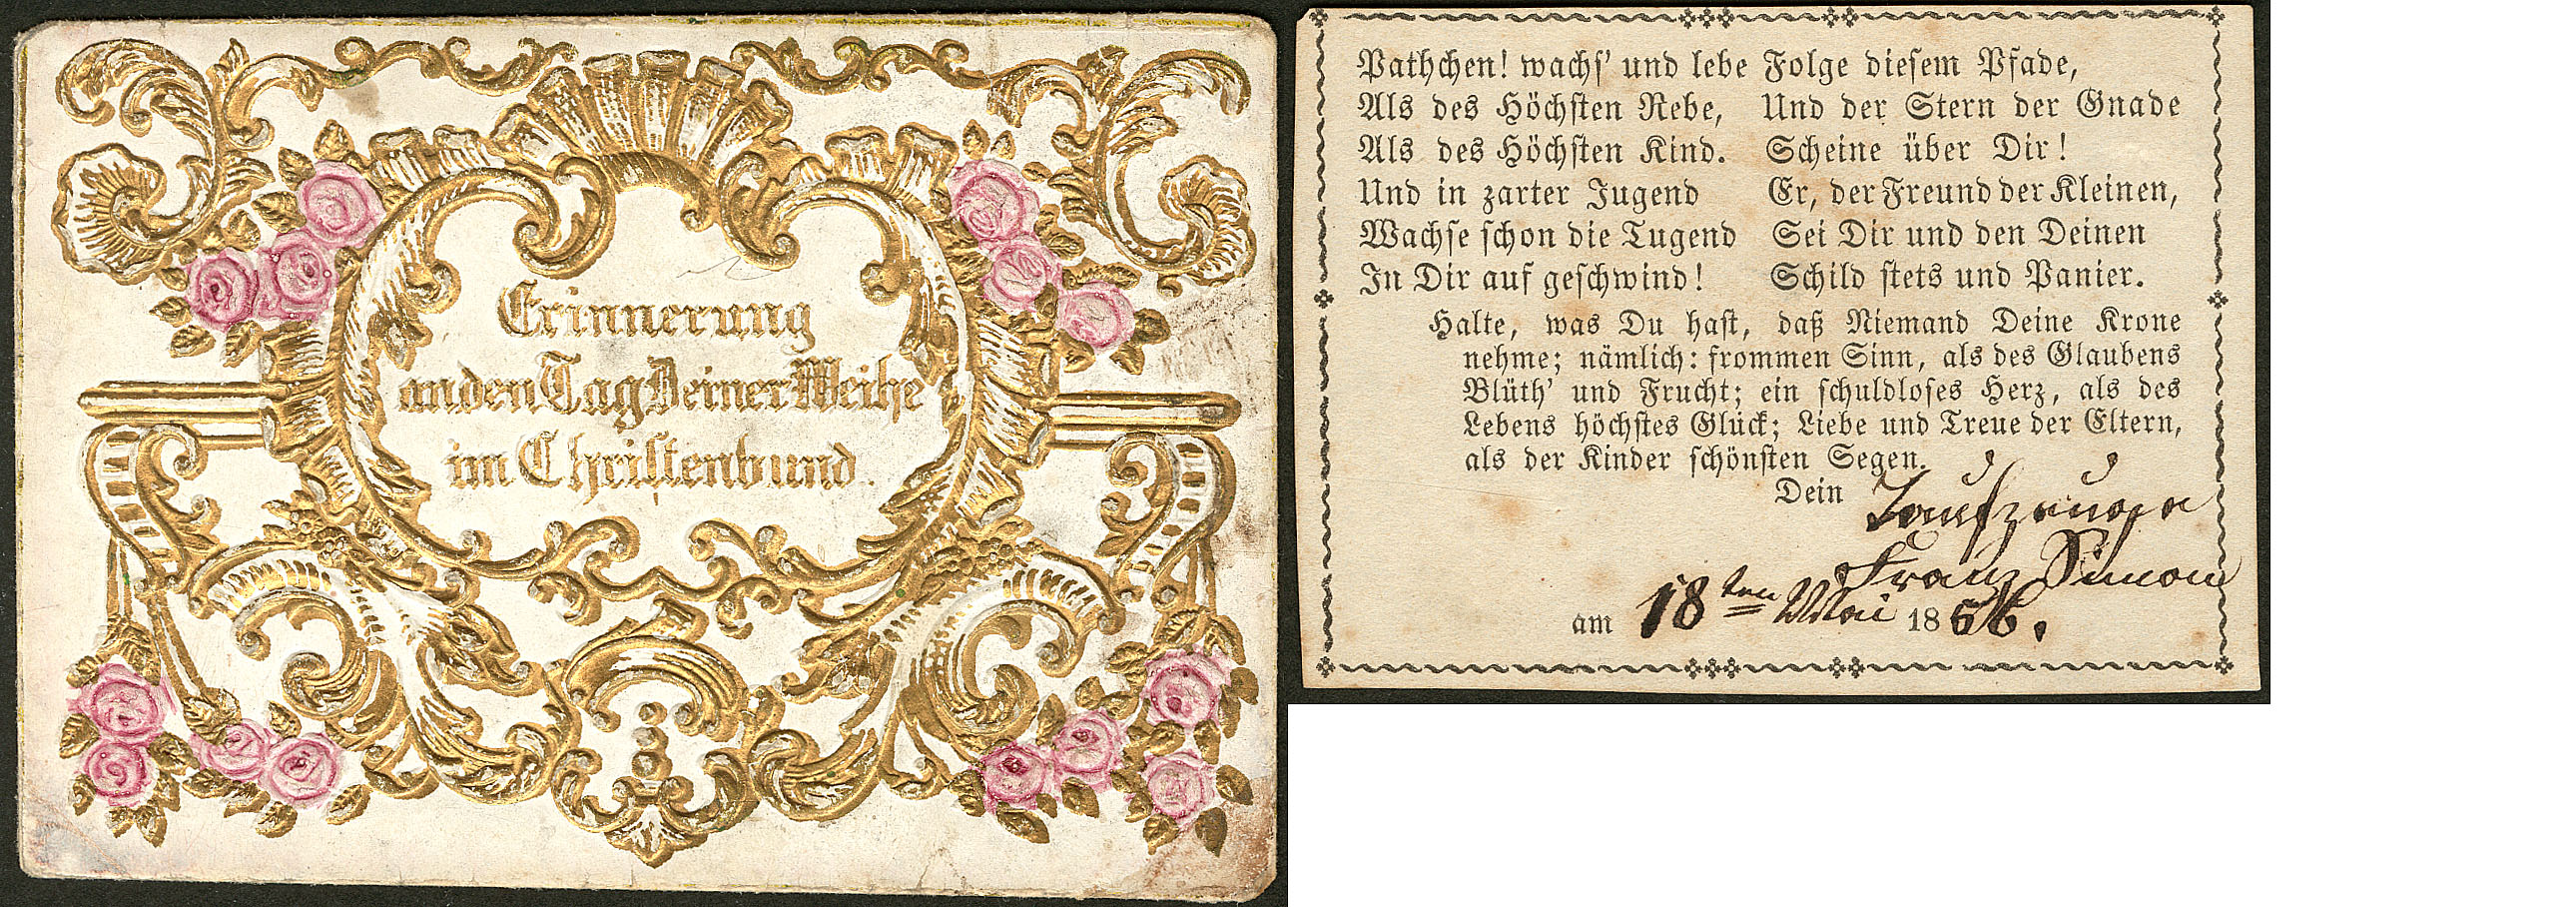 Erinnerung
an den Tag Deiner Weihe
im Christenbund.
Pathchen! wachs' und lebe
Als des Höchsten Rebe,
Als des Höchsten Kind.
Und in zarter Jugend
Wachse schon die Tugend
In Dir auf geschwind!
Folge diesem Pfade,
Und der Stern der Gnade
Scheine über Dir!
Er, der Freund der Kleinen,
Sei Dir und den Deinen
Schild stets und Panier.
Halte, was Du hast, daß Niemand Deine Krone
nehme; nämlich: frommen Sinn, als des Glaubens
Blüth' und Frucht; ein schuldloses Herz, als des
Lebens höchstes Glück; Liebe und Treue der Eltern,
als der Kinder schönsten Segen.
Dein Taufzeuge
Franz Simon
am 18ten Mai 1856.